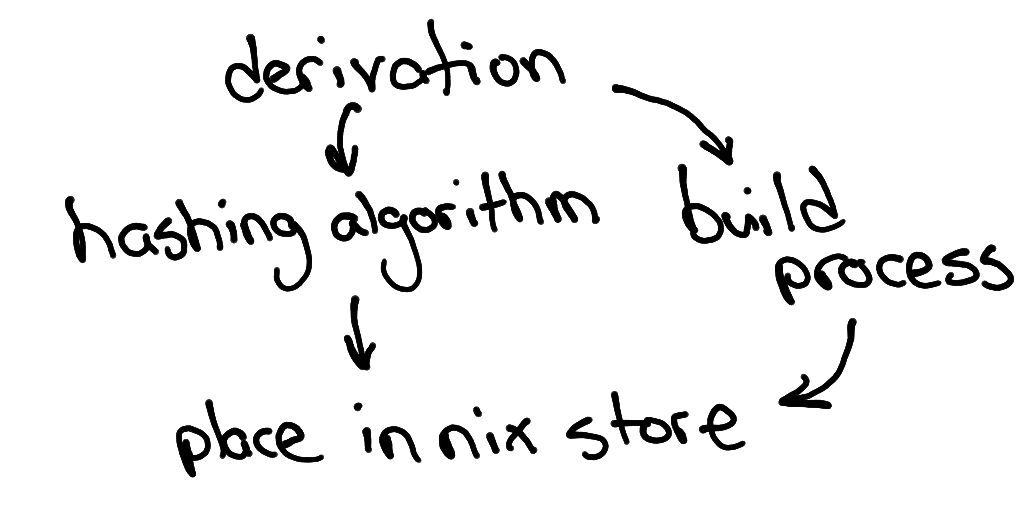 derivation
hashing algorithm
build
process
place in nix store